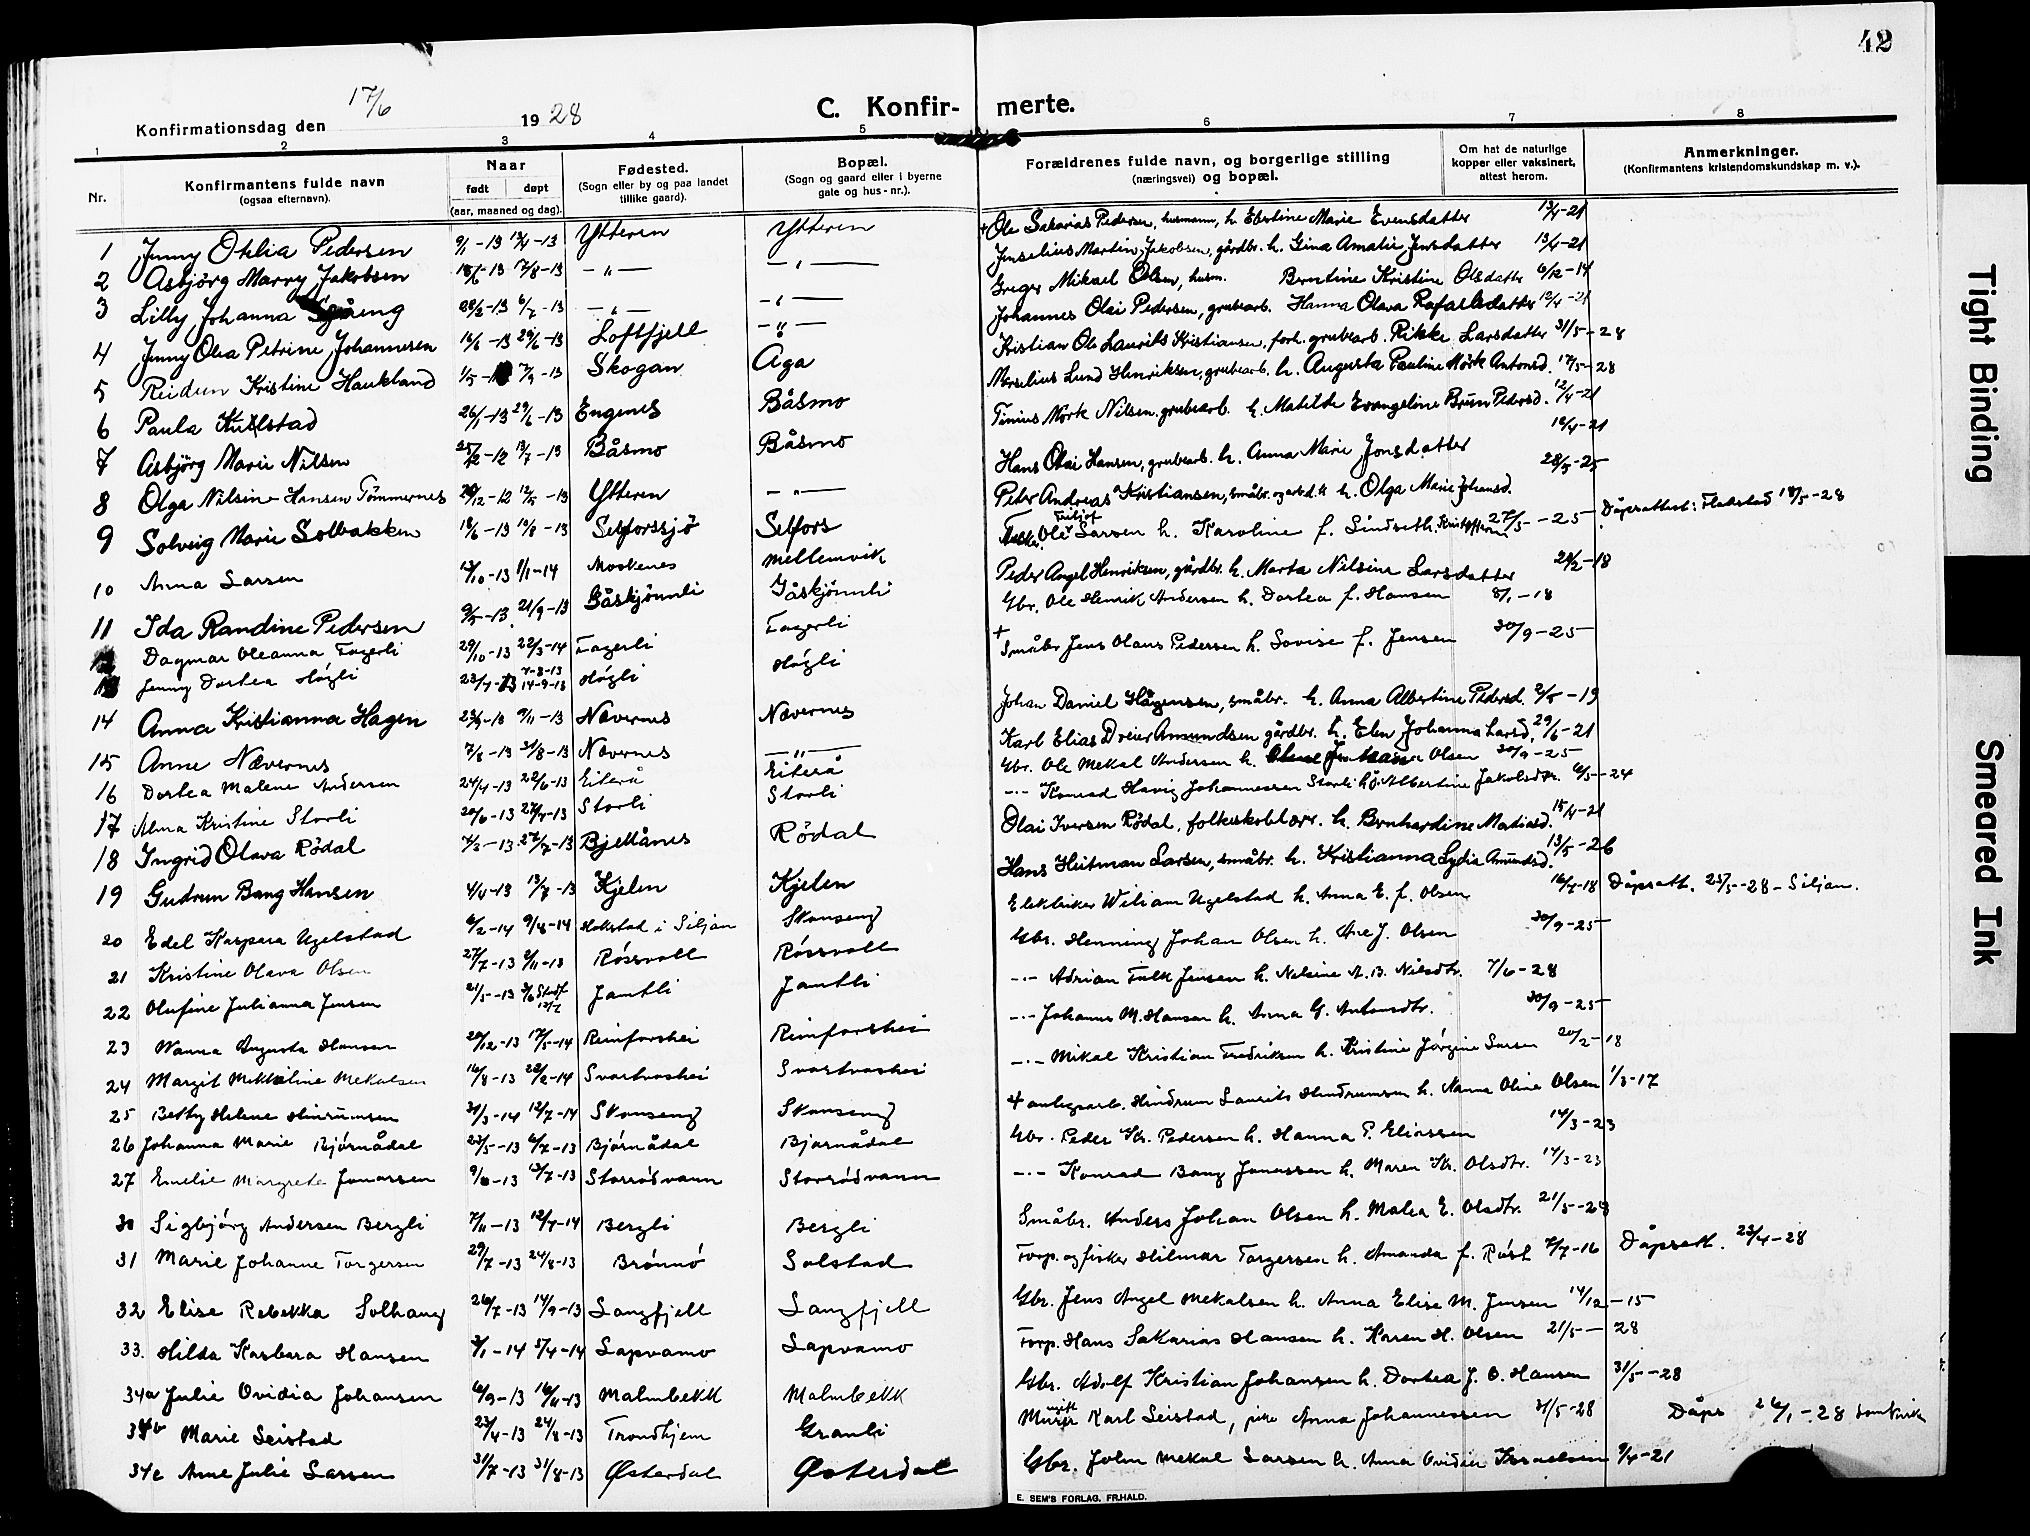 42
17/6
Konfirmationsdag den 1928
C. Konfir- merte.
1 2 3 4 5 6 7 8
Nr.
Konfirmantens fulde navn
(ogsaa efternavn).
Naar
født døpt
(aar, maaned og dag).
Fødested.
(Sogn eller by og paa landet
tillike gaard).
Bopæl.
(Sogn og gaard eller i byerne
gate og hus-nr.).
Forældrenes fulde navn, og borgerlige stilling
(næringsvei) og bopæl.
Om hat de naturlige
kopper eller vaksinert,
attest herom.
Anmerkninger.
(Konfirmantens kristendomskundskap m. v.).
1 Jenny Othlia Pedersen 9/1-13 13/4-13 Ytteren Ytteren + Ole Sakarias Pedersen, husmann, h. Ebertine Marie Evensdatter 13/4-21
2 Asbjörg Marry Jakobsen 18/6-13 17/8-13 -"- -"- Jenselius Martin Jakobsen, gårdbr. h. Gina Amalie Jensdatter 13/4-21
3 Lilly Johanna 28/2-13 6/7-13 -"- -"- Greger Mikael Olsen, husm. Berntine Kristine Olsdatter 6/12-14
4 Jenny Olea Petrine Johannesen 16/6-13 29/6-13 Loftfjell -"- Johannes Olai Pedersen, grubearb. Hanna Olava Rafaelsdatter 12/4-21
5 Reidun Kristine Haukland 1/5-13 7/9-13 Skogan Åga Kristian Ole Laurits Kristiansen, forh. grubearb. Rikke Larsdatter 31/5-28
6 Paula Kullstad 26/1-13 29/6-13 Engenes Båsmo Merselius Lund Henriksen, grubearb. h. Augusta Pauline Mörk Antonsd. 17/5-28
7 Asbjörg Marie Nilsen 25/12-12 13/7-13 Båsmo Båsmo Timius Mörk Nilsen, grubearb. h. Matilde Evangeline Brun Pedersd. 12/4-21
8 Olga Nilsine Hansen Tömmernes 29/12-12 12/5-13 Ytteren -"- Hans Olai Hansen, grubearb. h. Anna Marie Jonsdatter 16/4-21
9 Solveig Marie Solbakken 18/6-13 10/8-13 Selforssjö Selfors Peter Andreas Kristiansen, småbr. og arbd. h. Olga Marie Johansd. 28/5-25
10 Anna Larsen 13/10-13 1/1-14 Moskenes Mellemvik Fisker Ole Larsen h. Karoline f. Sindseth 27/5-25 Dåpsattest: Flakstad 18/5-28
11 Ida Randine Pedersen 9/5-13 21/9-13 Gåskjönnli Gåskjönnli Peder Angel Henriksen, gårdbr. h. Marta Nilsine Larsdatter 28/2-18
12 Dagmar Oleanna Fagerli 29/10-13 22/3-14 Fagerli Fagerli Gbr. Ole Henrik Andersen h. Dortea f. Hansen 8/1-18
13 Jenny Dortea Høgli 23/7-13 14-9-13 Høgli Høgli + Småbr Jens Olaus Pedersen h. Lovise f. Jensen 30/9-25
14 Anna Kristianna Hagen 23/9-13 9/11-13 Nævernes Nævernes Johan Daniel Hågensen, småbr. h. Anna Albertine Pedersd. 2/5-19
15 Anne Nævernes 7/8-13 31/8-13 Nævernes -"- Karl Elias Dreier Amundsen gårdbr. h. Elen Johanna Larsd. 29/6-21
16 Dortea Malene Andersen 24/4-13 22/6-13 Eiterå Eiterå Gbr. Ole Mekal Andersen h. Olsen 30/9-25
17 Alma Kristine Storli 20/6-13 27/7-13 Storli Storli -"- Konrad Havig Johannessen Storli h. J. Albertine Jakobsdtr. 6/5-24
18 Ingrid Olava Rödal 7/3-13 27/7-13 Bjellånes Rödal Olai Iversen Rödal, folkeskolelærer. h. Bernhardine Matiasd. 15/4-21
19 Gudrun Bang Hansen 4/4-13 13/7-13 Kjelen Kjelen Hans Heitman Larsen, småbr. h. Kristianna Lydia Amundsd. 13/5-26
20 Edel Kaspara Ugelstad 6/2-14 9/8-14 Hokstad i Siljan Skanseng Elektriker Wiliam Ugelstad h. Anna E. f. Olsen 16/7-18 Dåpsatt. 25/5-28 - Siljan.
21 Kristine Olava Olsen 27/7-13 2/11-13 Røssvoll Røssvoll Gbr. Henning Johan Olsen h. Ane J. Olsen 30/9-25
22 Olufine Julianna Jensen 21/5-13 Jamtli Jamtli -"- Adrian Falk Jensen h. Nelsine A. B. Nilsdtr. 7/6-28
23 Nanna Augusta Hansen 20/12-13 17/5-14 Reinforshei Reinforshei -"- Johannes M. Hansen h. Anna G. Antonsdtr. 30/9-25
24 Margit Mekkeline Mekalsen 16/8-13 22/2-14 Svartvashei Svartvashei -"- Mikal Kristian Fredriksen h. Kristine Jørgine Larsen 20/2-18
25 Betty Helene Hinrumsen 31/3-14 12/7-14 Skanseng Skanseng + anlegsarb. Hindrum Laurits Hindrumsen h. Nanna Oline Olsen 1/3-17
26 Johanna Marie Bjørnådal 23/5-13 6/7-13 Bjørnådal Bjørnådal Gbr. Peder Kr. Pedersen h. Hanna P. Eliassen 14/3-23
27 Emelie Margrete Jonassen 9/6-13 13/7-13 Storrødvann Storrødvann -"- Konrad Bang Jonassen h. Maren Kr. Olsdtr. 14/3-23
30 Sigbjørg Andersen Bergli 7/11-13 12/4-14 Bergli Bergli Småbr. Anders Johan Olsen h. Malea E. Olsdtr. 21/5-28
31 Marie Johanne Torgersen 29/7-13 24/8-13 Brønnø Solstad Forp. og fisker Hilmar Torgersen h. Amanda f. Røst 7/7-16 Dåpsatt. 23/4-28
32 Elise Rebekka Solhaug 26/7-13 14/9-13 Langfjell Langfjell Gbr. Jens Angel Mekalsen h. Anna Elise M. Jensen 14/12-15
33. Hilda Kasbara Hansen 3/1-14 5/4-14 Lapvamo Lapvamo Forp. Hans Sakarias Hansen h. Karen H. Olsen 21/5-28
34a Julie Ovidia Johansen 6/9-13 16/11-13 Malmbekk Malmbekk Gbr. Adolf Kristian Johansen h. Dortea J. O. Hansen 31/5-28
34b Marie Seistad 23/4-13 24/8-13 Trondhjem Granli ugift Murer Karl Seistad, pike Anna Johannessen 31/5-28 Dåps 26/1-28
34c Arne Julie Larsen 31/7-13 31/8-13 Østerdal Østerdal Gbr. John Mekal Larsen h. Anna Ovidia Israelsen 9/4-21
E. SEM'S FORLAG, FR.HALD.
Tight Binding
Smeared Ink